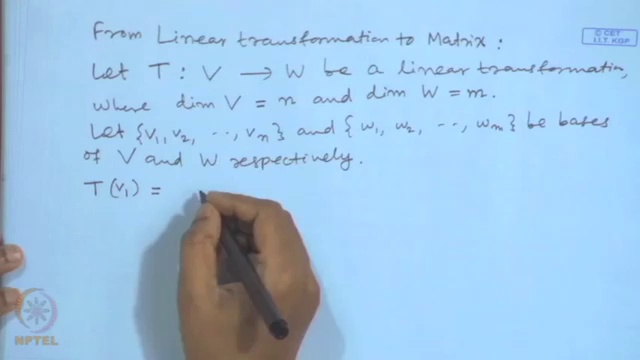 From Linear transformation to Matrix:
© CET
I.I.T. KGP
Let T : V → W be a linear transformation,
where dim V = n and dim W = m.
Let {v₁, v₂, ⋯, vₙ} and {w₁, w₂, ⋯, wₘ} be bases
of V and W respectively.
T(v₁) =
NPTEL